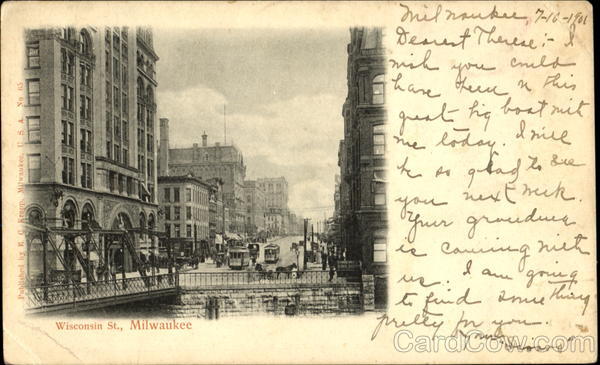 Milwaukee, 7-16-1901
Dearest Therese:- I
wish you could
have been on this
great big boat with
me today. I will
be so glad to see
you next week.
Your grandma
is coming with
us. I am going
to find something
pretty for you.
Wisconsin St., Milwaukee
Published by E. C. Kropp, Milwaukee, U. S. A. No 65
CardCow.com